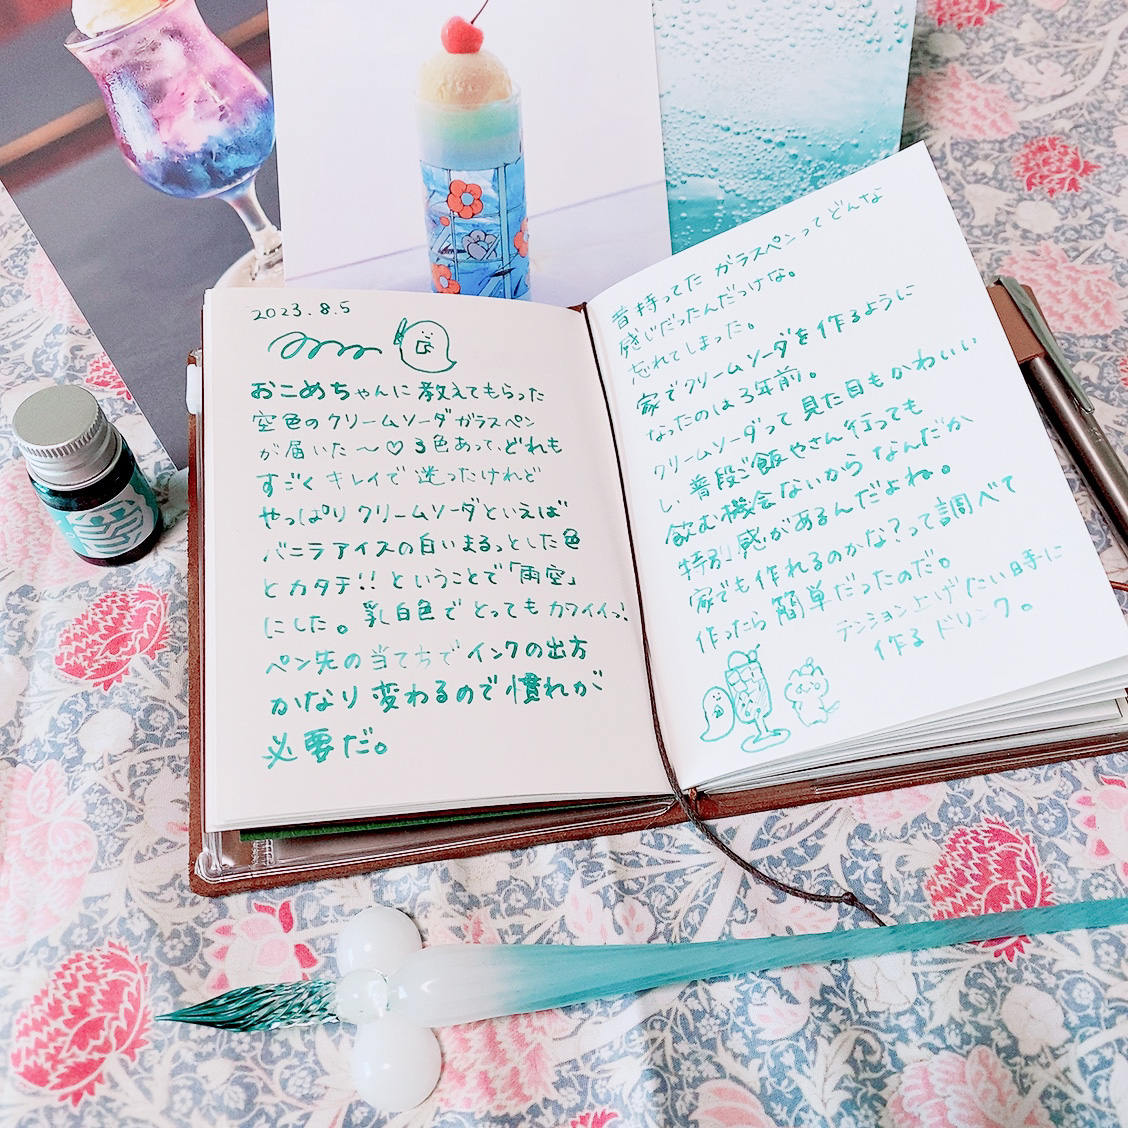 2023.8.5
おこめちゃんに教えてもらった
空色のクリームソーダガラスペン
が届いた〜♡3色あって、どれも
すごくキレイで迷ったけれど
やっぱりクリームソーダといえば
バニラアイスの白いまるっとした色
とカタチ!!ということで「雨空」
にした。乳白色でとってもカワイイっ!
ペン先の当て方でインクの出方
かなり変わるので慣れが
必要だ。
昔持ってたガラスペンってどんな
感じだったんだっけな。
忘れてしまった。
家でクリームソーダを作るように
なったのは3年前。
クリームソーダって見た目もかわいい
し普段ご飯やさん行っても
飲む機会ないからなんだか
特別感があるんだよね。
家でも作れるのかな?って調べて
作ったら簡単だったのだ。
テンション上げたい日時に
作るドリンク。